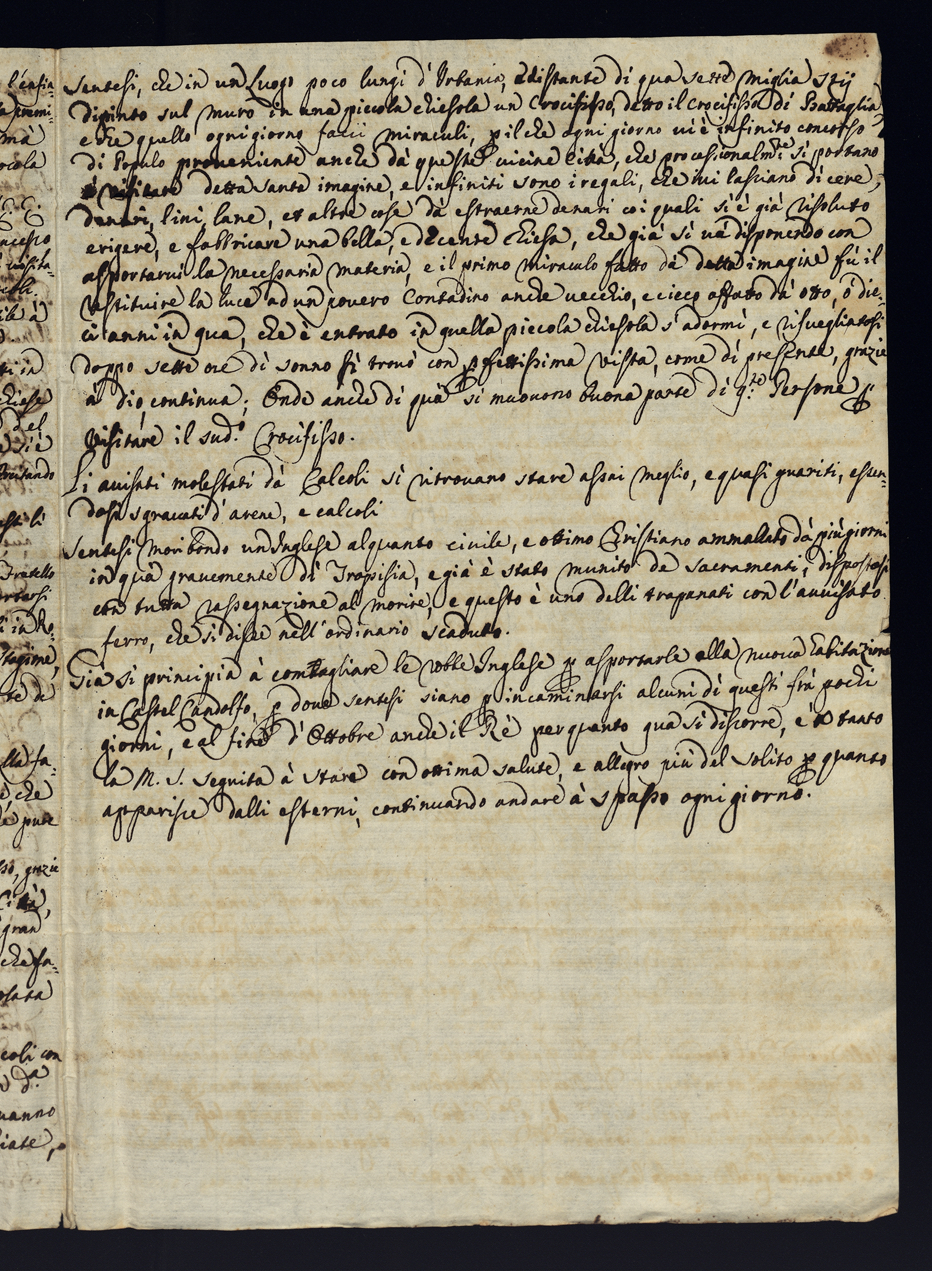 Sentesi, che in un Luogo poco lungi d'Urbania, e distante di qua sette miglia
dipinto sul muro in una piccola chiesola un Crocifisso, detto il Crocifisso di Battaglia
e che quello ogni giorno facci miraculi, p il che ogni giorno vi è infinito concorso
di Populo proveniente anche dà queste vicine Città, che processionalmte si portano
à visitare detta santa imagine, e infiniti sono i regali, che lui lasciano di cere,
denari, lini, lane, et altre cose dà estraerne denari coi quali si è già risoluto
erigere, e fabbricare una bella, e decente Chiesa, che già si và disponendo con
asportarvi la necessaria materia, e il primo miraculo fatto dà detta imagine fù il
restituire la luce ad un povero Contadino anche vecchio, e cieco affatto dà otto, ò die=
ci anni in qua, che è entrato in quella piccola chiesola s'adormì, e risuegliatosi
doppo sette ore di sonno si trovò con pfettissima vista, come di presente, grazie
à dio, continua; Onde anche di quà si muovono buona parte di q.te Persone p
visitare il sud.o Crocifisso.
Li avisati molestati dà Calcoli si ritrovano stare assai meglio, e quasi guariti, essen=
dosi sgravati d'arene, e calcoli
Sentesi moribondo un Inglese alquanto civile, e ottimo Cristiano ammallato dà più giorni
in quà gravemente di Itropisia, e già è stato munito de sacramenti, dispostosi
con tutta rassegnazione al morire, e questo è uno delli trapanati con l'avvisato
ferro, che si disse nell'ordinario scaduto.
Già si principia à combagliare le robbe Inglese p asportarle alla nuova habitazione
in Castel Gandolfo, p dove sentesi siano p incaminarsi alcuni di questi frà pochi
giorni, e al fine d'Ottobre anche il Rè per quanto qua si discorre, e to tanto
la M. S. seguita à stare con ottima salute, e allegro più del solito p quanto
apparisce dalli esterni, continuando andare à spasso ogni giorno.